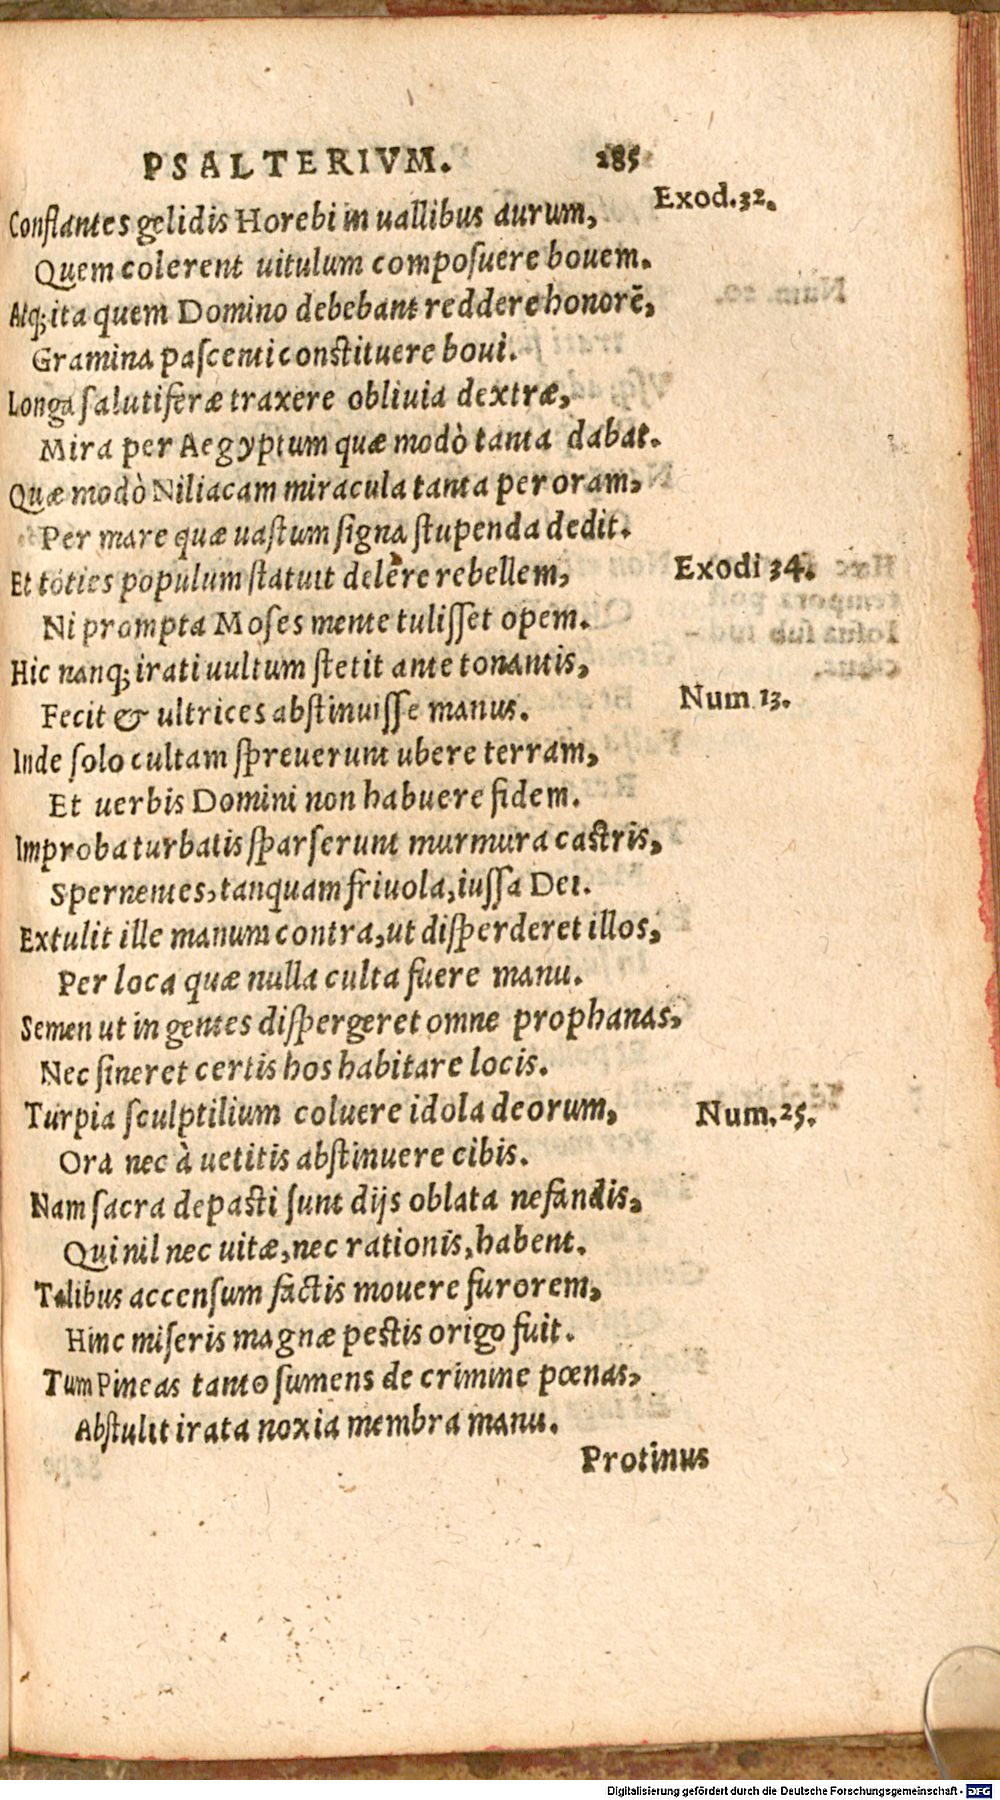 PSALTERIVM. 285
Conflantes gelidis Horebi in uallibus aurum, Exod. 32.
Quem colerent uitulum composuere bouem.
Atq; ita quem Domino debebant reddere honorē,
Gramina pascenti constituere boui.
Longa salutiferæ traxere obliuia dextræ,
Mira per Aegyptum quæ modò tanta dabat.
Quæ modò Niliacam miracula tanta per oram,
Per mare quæ uastum signa stupenda dedit.
Et toties populum statuit delere rebellem, Exodi 34.
Ni prompta Moses mente tulisset opem.
Hic nanq; irati uultum stetit ante tonantis,
Fecit & ultrices abstinuisse manus. Num 13.
Inde solo cultam spreuerunt ubere terram,
Et uerbis Domini non habuere fidem.
Improba turbatis sparserunt murmura castris,
Spernentes, tanquam friuola, iussa Dei.
Extulit ille manum contra, ut disperderet illos,
Per loca quæ nulla culta fuere manu.
Semen ut in gentes dispergeret omne prophanas,
Nec sineret certis hos habitare locis.
Turpia sculptilium coluere idola deorum, Num. 25.
Ora nec à uetitis abstinuere cibis.
Nam sacra depasti sunt dijs oblata nefandis,
Qui nil nec uitæ, nec rationis, habent.
Talibus accensum factis mouere furorem,
Hinc miseris magnæ pestis origo fuit.
Tum Pineas tanto sumens de crimine pœnas,
Abstulit irata noxia membra manu.
Protinus
Digitalisierung gefördert durch die Deutsche Forschungsgemeinschaft - DFG